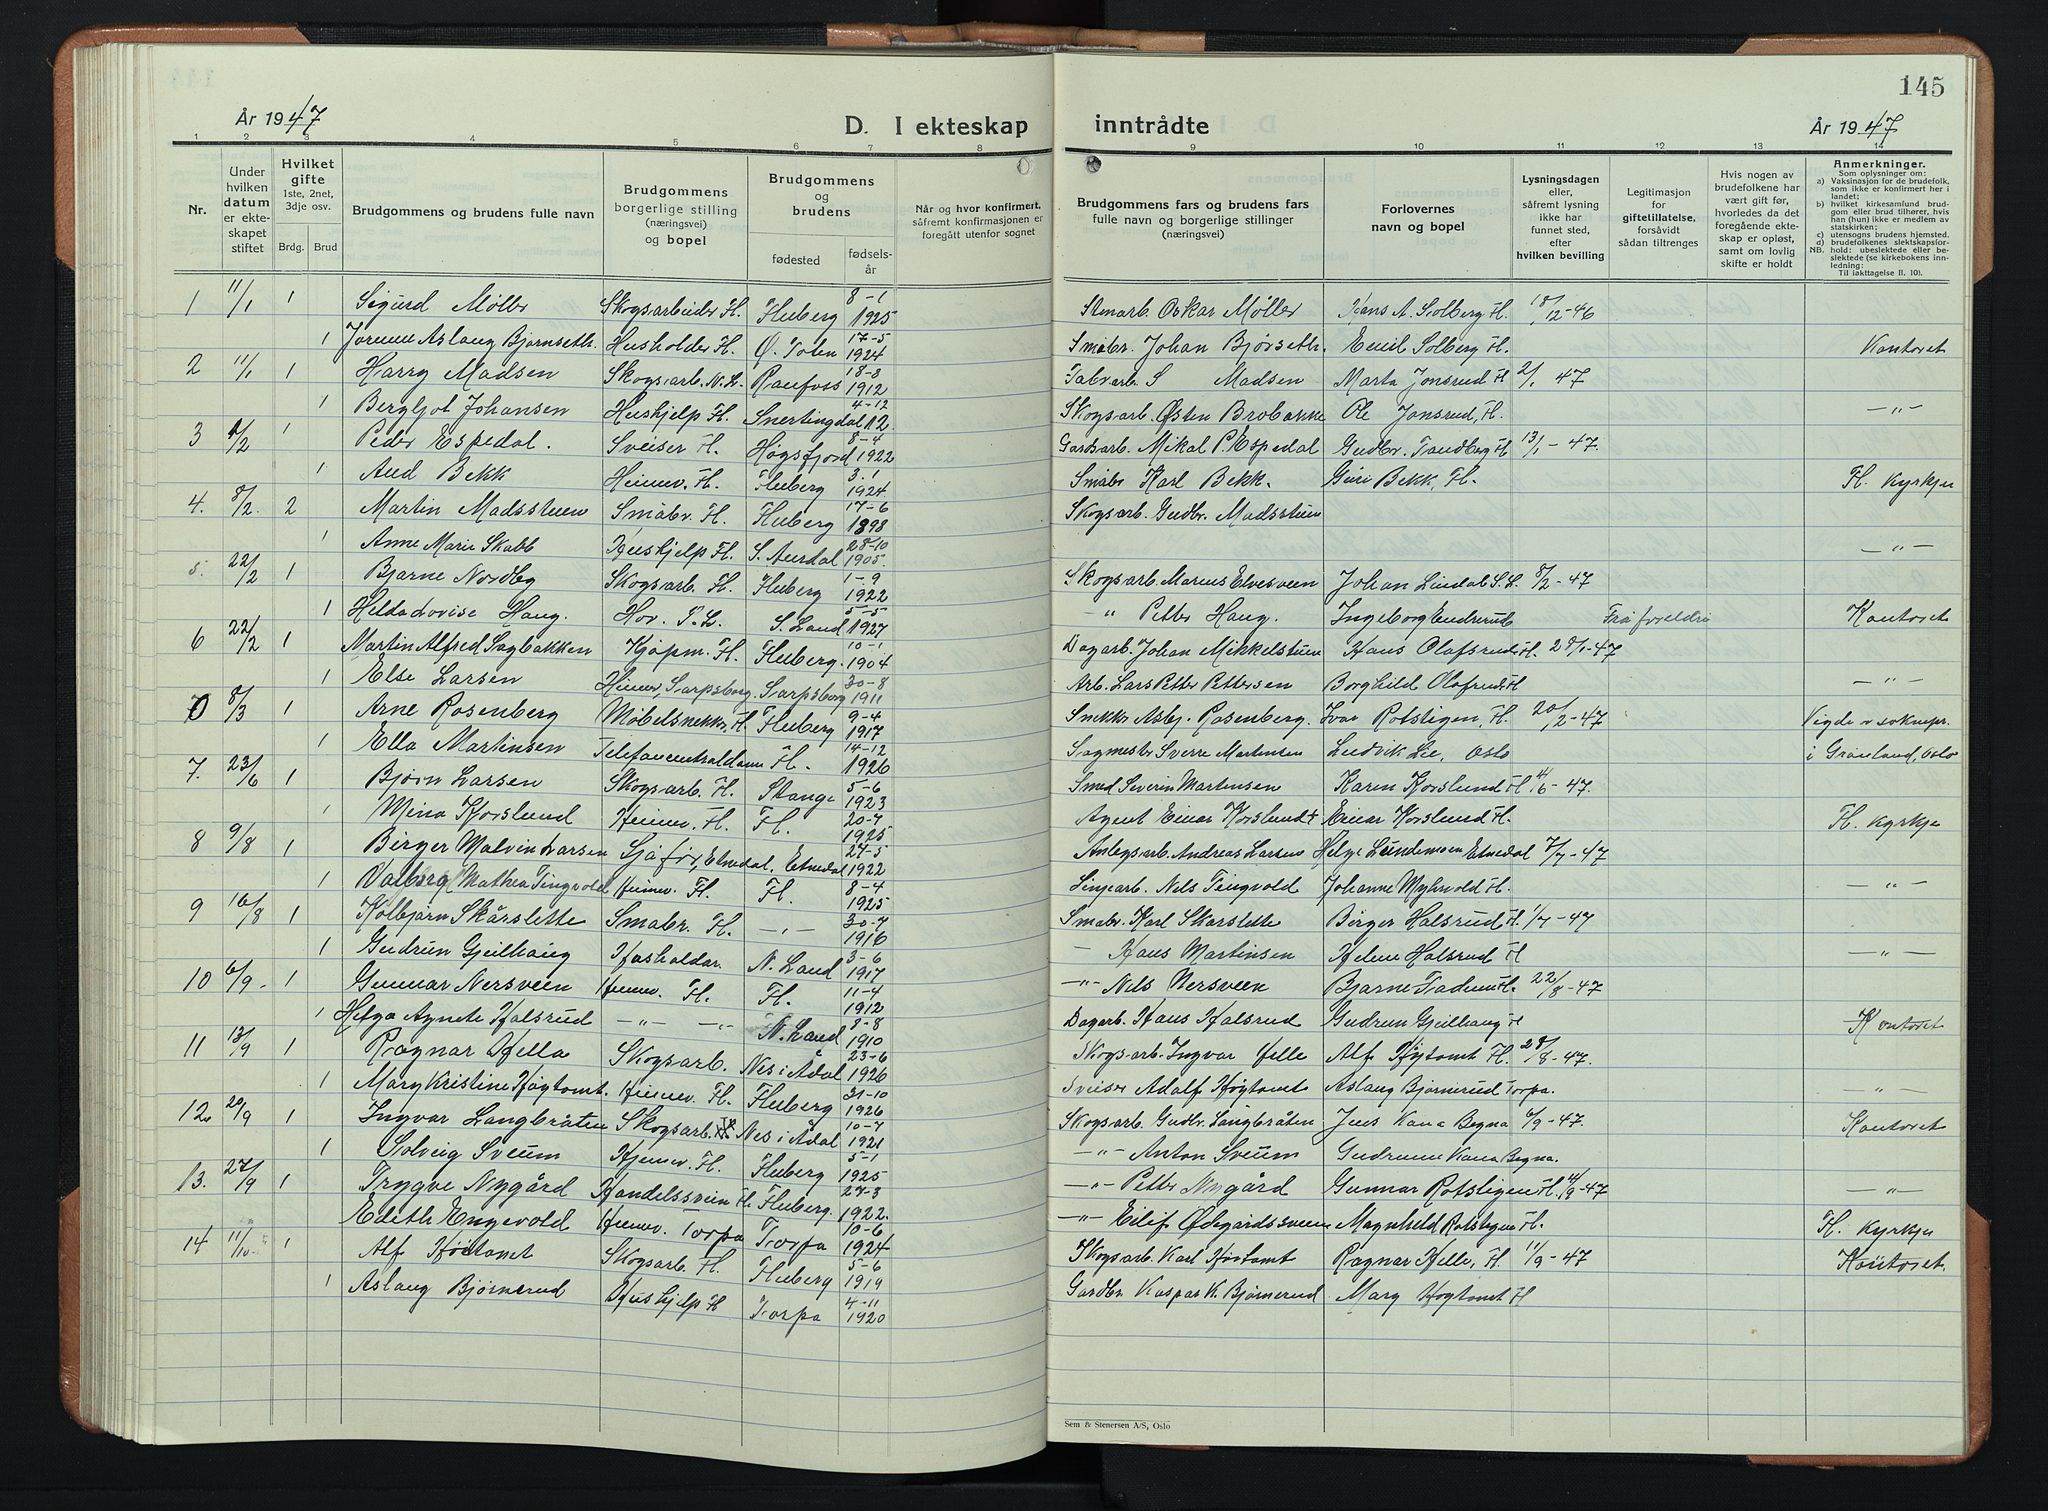 145
År 1947
D. I ekteskap inntrådte
År 1947
1 2 3 4 5 6 7 8 9 10 11 12 13 14
Nr.
Under hvilken datum er ekteskapet stiftet
Hvilket gifte 1ste, 2net, 3dje osv.
Brdg. Brud
Brudgommens og brudens fulle navn
Brudgommens borgerlige stilling (næringsvei) og bopel
Brudgommens og brudens
fødested
fødselsår
Når og hvor konfirmert, såfremt konfirmasjonen er foregått utenfor sognet
Brudgommens fars og brudens fars fulle navn og borgerlige stillinger (næringsvei)
Forlovernes navn og bopel
Lysningsdagen eller, såfremt lysning ikke har funnet sted, efter hvilken bevilling
Legitimasjon for giftetillatelse, forsåvidt sådan tiltrenges
Hvis nogen av brudefolkene har vært gift før, hvorledes da det foregående ekteskap er opløst, samt om lovlig skifte er holdt
Anmerkninger.
Som oplysninger om:
a) Vaksinasjon for de brudefolk, som ikke er konfirmert her i landet;
b) hvilket kirkesamfund brudgom eller brud tilhører, hvis han (hun) ikke er medlem av statskirken;
c) utensogns brudens hjemsted.
d) brudefolkenes slektskapsforhold: ubeslektede eller beslektede (se kirkebokens innledning:
NB. Til iakttagelse II. 10).
1 11/1 1 Sigurd Møller Skogsarbeider Fl. Fluberg 8-1 1925 Stenarb. Oskar Møller Hans A. Solberg Fl. 18/12-46
1 Jorunn Aslaug Bjørnseth. Husholder Fl. Ø. Toten 17-5 1924 Småbr. Johan Bjørseth. Emil Solberg Fl. Kontoret
2 11/1 1 Harry Madsen Skogsarb. N. L. Raufoss 18-8 1912 Fabr.arb. S Madsen Marta Jonsrud Fl 2/1 47
1 Bergljot Johansen Hushjelp Fl. Snertingdal 4-12 12. Skogsarb. Østen Brobakke Ole Jonsrud, Fl. -"-
3 1/2 1 Peder Espedal. Sveiser Fl. Høgsfjord 8-4 1922 Gardsarb. Mikal P. Espedal Gudbr. Tandberg Fl 13/1-47.
1 Aud Bekk Heimev. Fl. Fluberg 3.1 1924. Småbr Karl Bekk. Guri Bekk, Fl. Fl. Kyrkje
4. 8/2. 2 Martin Madsstuen Småbr. Fl. Fluberg 17-6 1898 Skogsarb. Gudbr. Madsstuen
1 Anne Marie Skabb Hushjelp Fl. S. Aurdal 28-10 1905. -"-
5. 22/2 1 Bjarne Nordby Skogsarb. Fl. Fluberg 1-9 1922 Skogsarb. Marius Elvesveen Johan Lindal S.L. 8/2-47
1 Helda Lovise Haug. Hov. S. L. S. Land 5-5 1927 " Petter Haug. Ingeborg Endrerud Frå foreldre Kontoret
6 22/2 1 Martin Alfred Sagbakken Kjøpm. Fl. Fluberg. 10-1 1904 Dagarb. Johan Mikkelstuen Hans Olafsrud Fl. 28/1-47
1 Else Larsen Heimev, Sarpsborg. Sarpsborg 30-8 1911 Arb. Lars Petter Pettersen Borghild Olafsrud. Fl -"-
0 8/3 1 Arne Rosenberg Møbelsnekker, Fl. Fluberg 9-4 1917 Snekker Asbj. Rosenberg. Ivar Rotstigen, Fl. 20/2-47 Vigde v soknepr.
1 Ella Martinsen Telefoncentraldame Fl. 14-12 1926 Sagmester Sverre Martinsen Ludvik Lie, Oslo i Grønland, Oslo
7. 23/6 1 Bjørn Larsen Skogsarb. Fl. Stange 5-6 1923 Smed Severin Martensen Karen Korslund Fl 4/6-47.
1 Mina Korslund Heimev. Fl. Fl. 20-7 1925 Agent Einar Korslund Einar Korslund Fl. Fl. Kyrkje
8 9/8 1 Birger Malvin Larsen Sjåfør, Etnedal. Etnedal 27-5 1922 Anlegsarb. Andreas Larsen Helge Lundemoen Etnedal 7/7-47
1 Valborg Mathea Tingvold Heimev. Fl. Fl. 8-4 1925 Linjearb. Nils Tingvold Johanne Myhrvold Fl. -"-
9 16/8 1 Kolbjørn Skårslette Småbr. Fl. -"- 30-7 1916 Småbr. Karl Skarslette Birger Halsrud Fl. 1/7-47
1 Gudrun Geilhaug Hushaldar. N. Land 3-6 1917 - Hans Martinsen Helene Halsrud Fl -"-
10 6/9- 1 Gunnar Nersveen Heimev. Fl. Fl. 11-4 1912 -"- Nils Nersveen Bjarne Fl. 22/8-47
1 Helga Agnete Halsrud -"- -"- N. Land 8-8 1910 Dagarb. Hans Halsrud Gudrun Geilhaug Fl Kontoret
11 13/9 1 Ragnar Hella Skogsarb. Nes i Ådal 23-6 1926 Skogsarb. Ingvar Helle Alf Høgtomt Fl. 28/8-47.
1 Mary Kristine Høgtomt. Heimev. Fl. Fluberg 31-10 1926 Sveiser Adolf Høgtomt Aslaug Bjørnerud Torpa. -"-
12. 20/9 1 Ingvar Langbråten Skogsarb. Nes i Ådal 10-7 1921 Skogsarb. Gudbr. Langbråten Jens Kana Begna 6/9-47. Kontoret
1 Solveig Sveum Heimev. Fl. Fluberg 5-1 1925 -"- Anton Sveum Gudrunn Kana Begna.
13. 27/9 1 Trygve Nygård Handelssvein Fl Fluberg. 27-3 1922. -"- Petter Nygård Gunnar Rotstigen Fl. 14/9-47 -"-
Edith Engevold Heimev Torpa Torpa 10-6 1924 -"- Eilif Ødegårdssveen Magnhild Rotstigen Fl. Fl. Kyrkje
14 11/10- 1 Alf Høgtomt Skogsarb. Fl. Fluberg 5-6 1919 Skogsarb. Karl Høgtomt Ragnar Helle, Fl. 11/9-47 Kontoret.
1 Aslaug Bjørnerud Hushjelp Fl Torpa 4-11 1920 Gardbr. Kaspar K. Bjørnerud Mary Høgtomt Fl
Sem & Stenersen A/S, Oslo